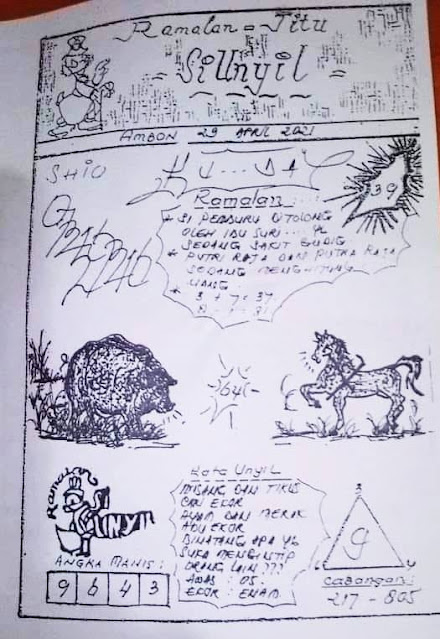 Ramalan - Jitu
= SiUnyil =
AMBON 29 APRIL 2021
SHIO
39
Ramalan :
* SI PEMBURU DITOLONG
OLEH IBU SURI ... YG
SEDANG SAKIT GUDIG
* PUTRI RAJA DAN PUTRA RAJA
SEDANG MENGHITUNG
UANG
3 + 7 = 37
8 + 1 = 81
64
Ramalan
UNYIL
ANGKA MANIS :
9 6 4 3
Kata Unyil
DAN TIKUS
EKOR
AYAM DAN MERAK
ADU EKOR
BINATANG APA YG
SUKA MENGINTIP
ORANG LAIN ???
AWAS : 05 :
EKOR : ENAM
3
9
6 4
Cabangan :
217 - 805